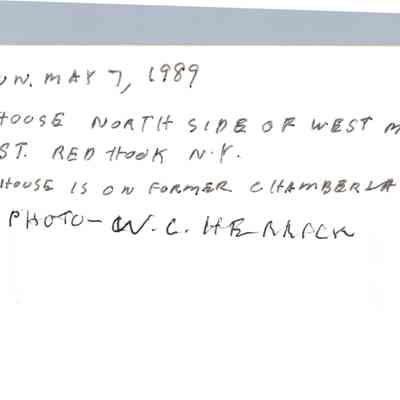 UN. MAY 7, 1989
HOUSE NORTH SIDE OF WEST M
ST. RED HOOK N.Y.
HOUSE IS ON FORMER CHAMBERLA
PHOTO- W. C. HERRICK